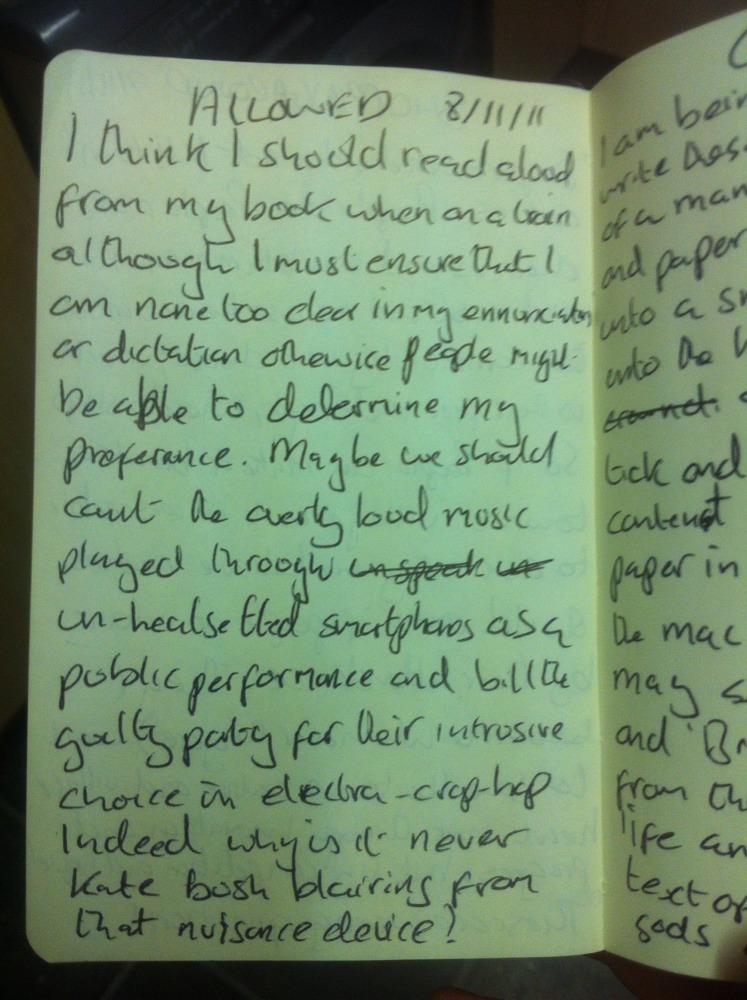 ALLOWED 8/11/11
I think I should read aloud
from my book when on a train
although I must ensure that I
am none too clear in my ennunciation
or dictation otherwice people might
be able to determine my
preferance. Maybe we should
count the overly loud music
played through un speak un
un-healsetted smartphones as a
public performance and bill the
guilty party for their intrusive
choice in electra-crap-hop
Indeed why is it never
Kate bush blairing from
that nuisance device?
I am bein
write thes
of a man
and paper
onto a sm
onto the
tick and
content
paper in
the mac
may s
and 'Br
from th
life an
text of
sods